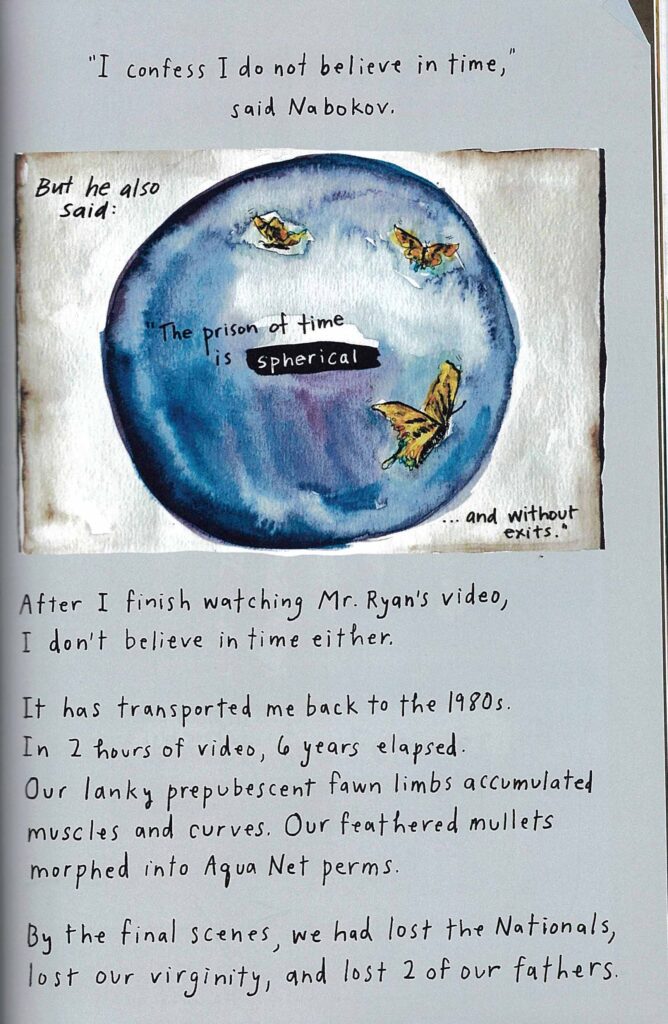 "I confess I do not believe in time,"
said Nabokov.
But he also
said:
"The prison of time
is spherical
...and without
exits."
After I finish watching Mr. Ryan's video,
I don't believe in time either.
It has transported me back to the 1980s.
In 2 hours of video, 6 years elapsed.
Our lanky prepubescent fawn limbs accumulated
muscles and curves. Our feathered mullets
morphed into Aqua Net perms.
By the final scenes, we had lost the Nationals,
lost our virginity, and lost 2 of our fathers.